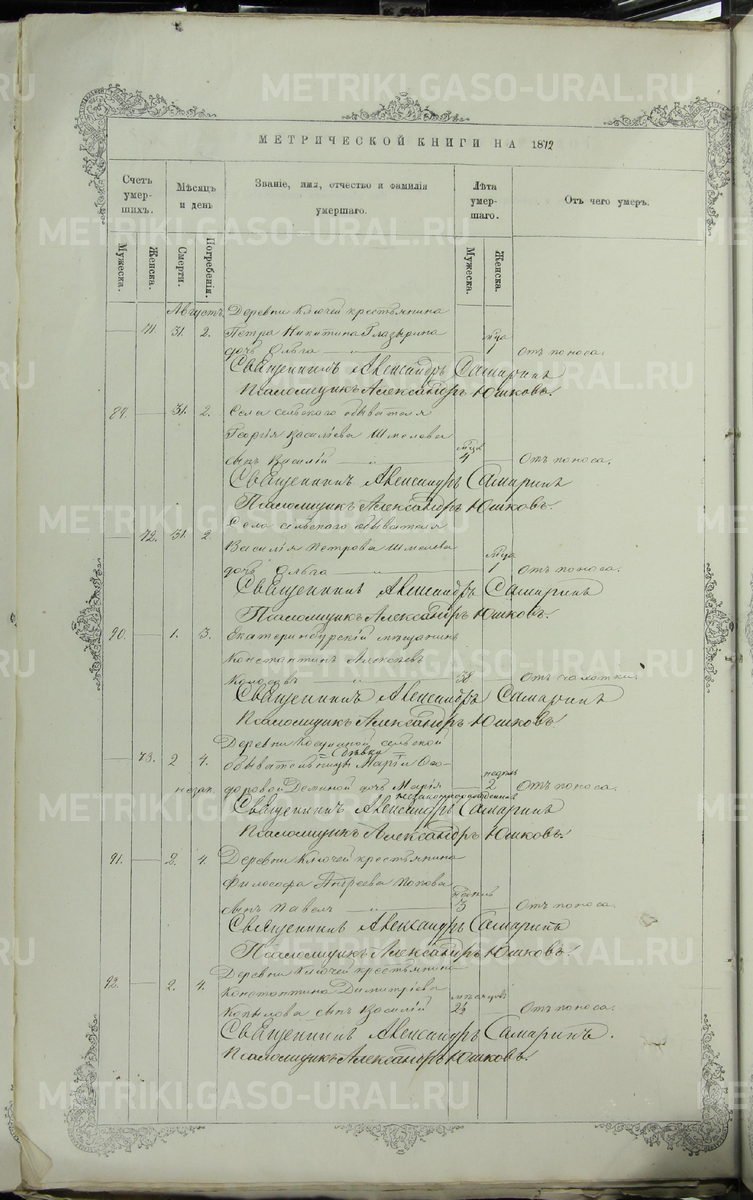 METRIKI.GASO-URAL.RU
МЕТРИЧЕСКОЙ КНИГИ НА 1872
Счетъ умер- шихъ.
Мѣсяцъ и день
Званіе, имя, отчество и фамилія умершаго.
Лѣта умер- шаго.
Отъ чего умеръ.
Мужеска.
Женска.
Смерти.
Погребенія.
Мужеска.
Женска.
Августъ. Деревни Ключей крестьянина
71. 31. 2. Петра Никитина Глазырина мца
дочь Ольга 1 Отъ поноса.
Священникъ Александръ Самаринъ
Псаломщикъ Александръ Юшковъ.
89. 31. 2. Села сельского обывателя
Георгія Васильева Шмелева
сынъ Василій 4 Отъ поноса.
Священникъ Александръ Самаринъ
Псаломщикъ Александръ Юшковъ.
72. 31. 2 Села сельскаго обывателя
Василія Петрова Шмелева мца
дочь Ольга 1 Отъ поноса.
Священникъ Александръ Самаринъ
Псаломщикъ Александръ Юшковъ.
90. 1. 3. Екатеринбургскій мѣщанинъ
Константинъ Алексѣевъ
38 Отъ чахотки.
Священникъ Александръ Самаринъ
Псаломщикъ Александръ Юшковъ.
73. 2 4. Деревни сельской
обывательницы дѣвки Маріи Ѳео-
незак. доровой дочь Марія 2 Отъ поноса.
незаконнорожденная
Священникъ Александръ Самаринъ
Псаломщикъ Александръ Юшковъ.
91. 2. 4. Деревни Ключей крестьянина
Философа Андреева Попова
сынъ Павелъ 3 Отъ поноса.
Священникъ Александръ Самаринъ
Псаломщикъ Александръ Юшковъ.
92. 2. 4. Деревни Ключей крестьянина
Константина Димитріева
Копылова сынъ Василій Отъ поноса.
Священникъ Александръ Самаринъ.
Псаломщикъ Александръ Юшковъ.